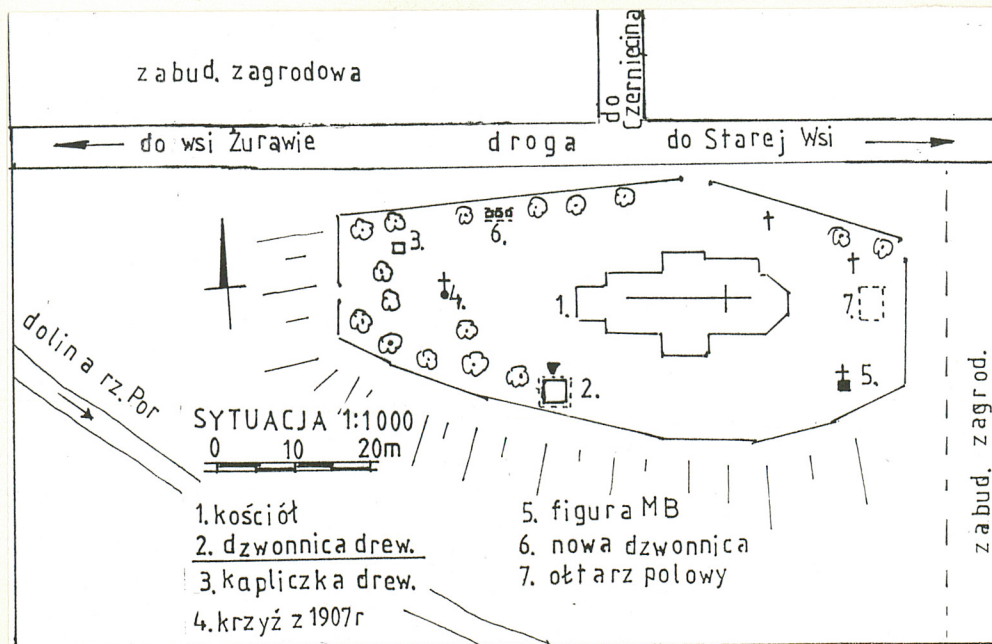 zabud. zagrodowa
do
Czerniecina
do wsi Żurawie
droga
do Starej Wsi
3.
6.
4.
1.
7.
2.
5.
dolina rz. Por
zabud. zagrod.
SYTUACJA 1:1000
0 10 20m
1. kościół
2. dzwonnica drew.
3. kapliczka drew.
4. krzyż z 1907r
5. figura MB
6. nowa dzwonnica
7. ołtarz polowy